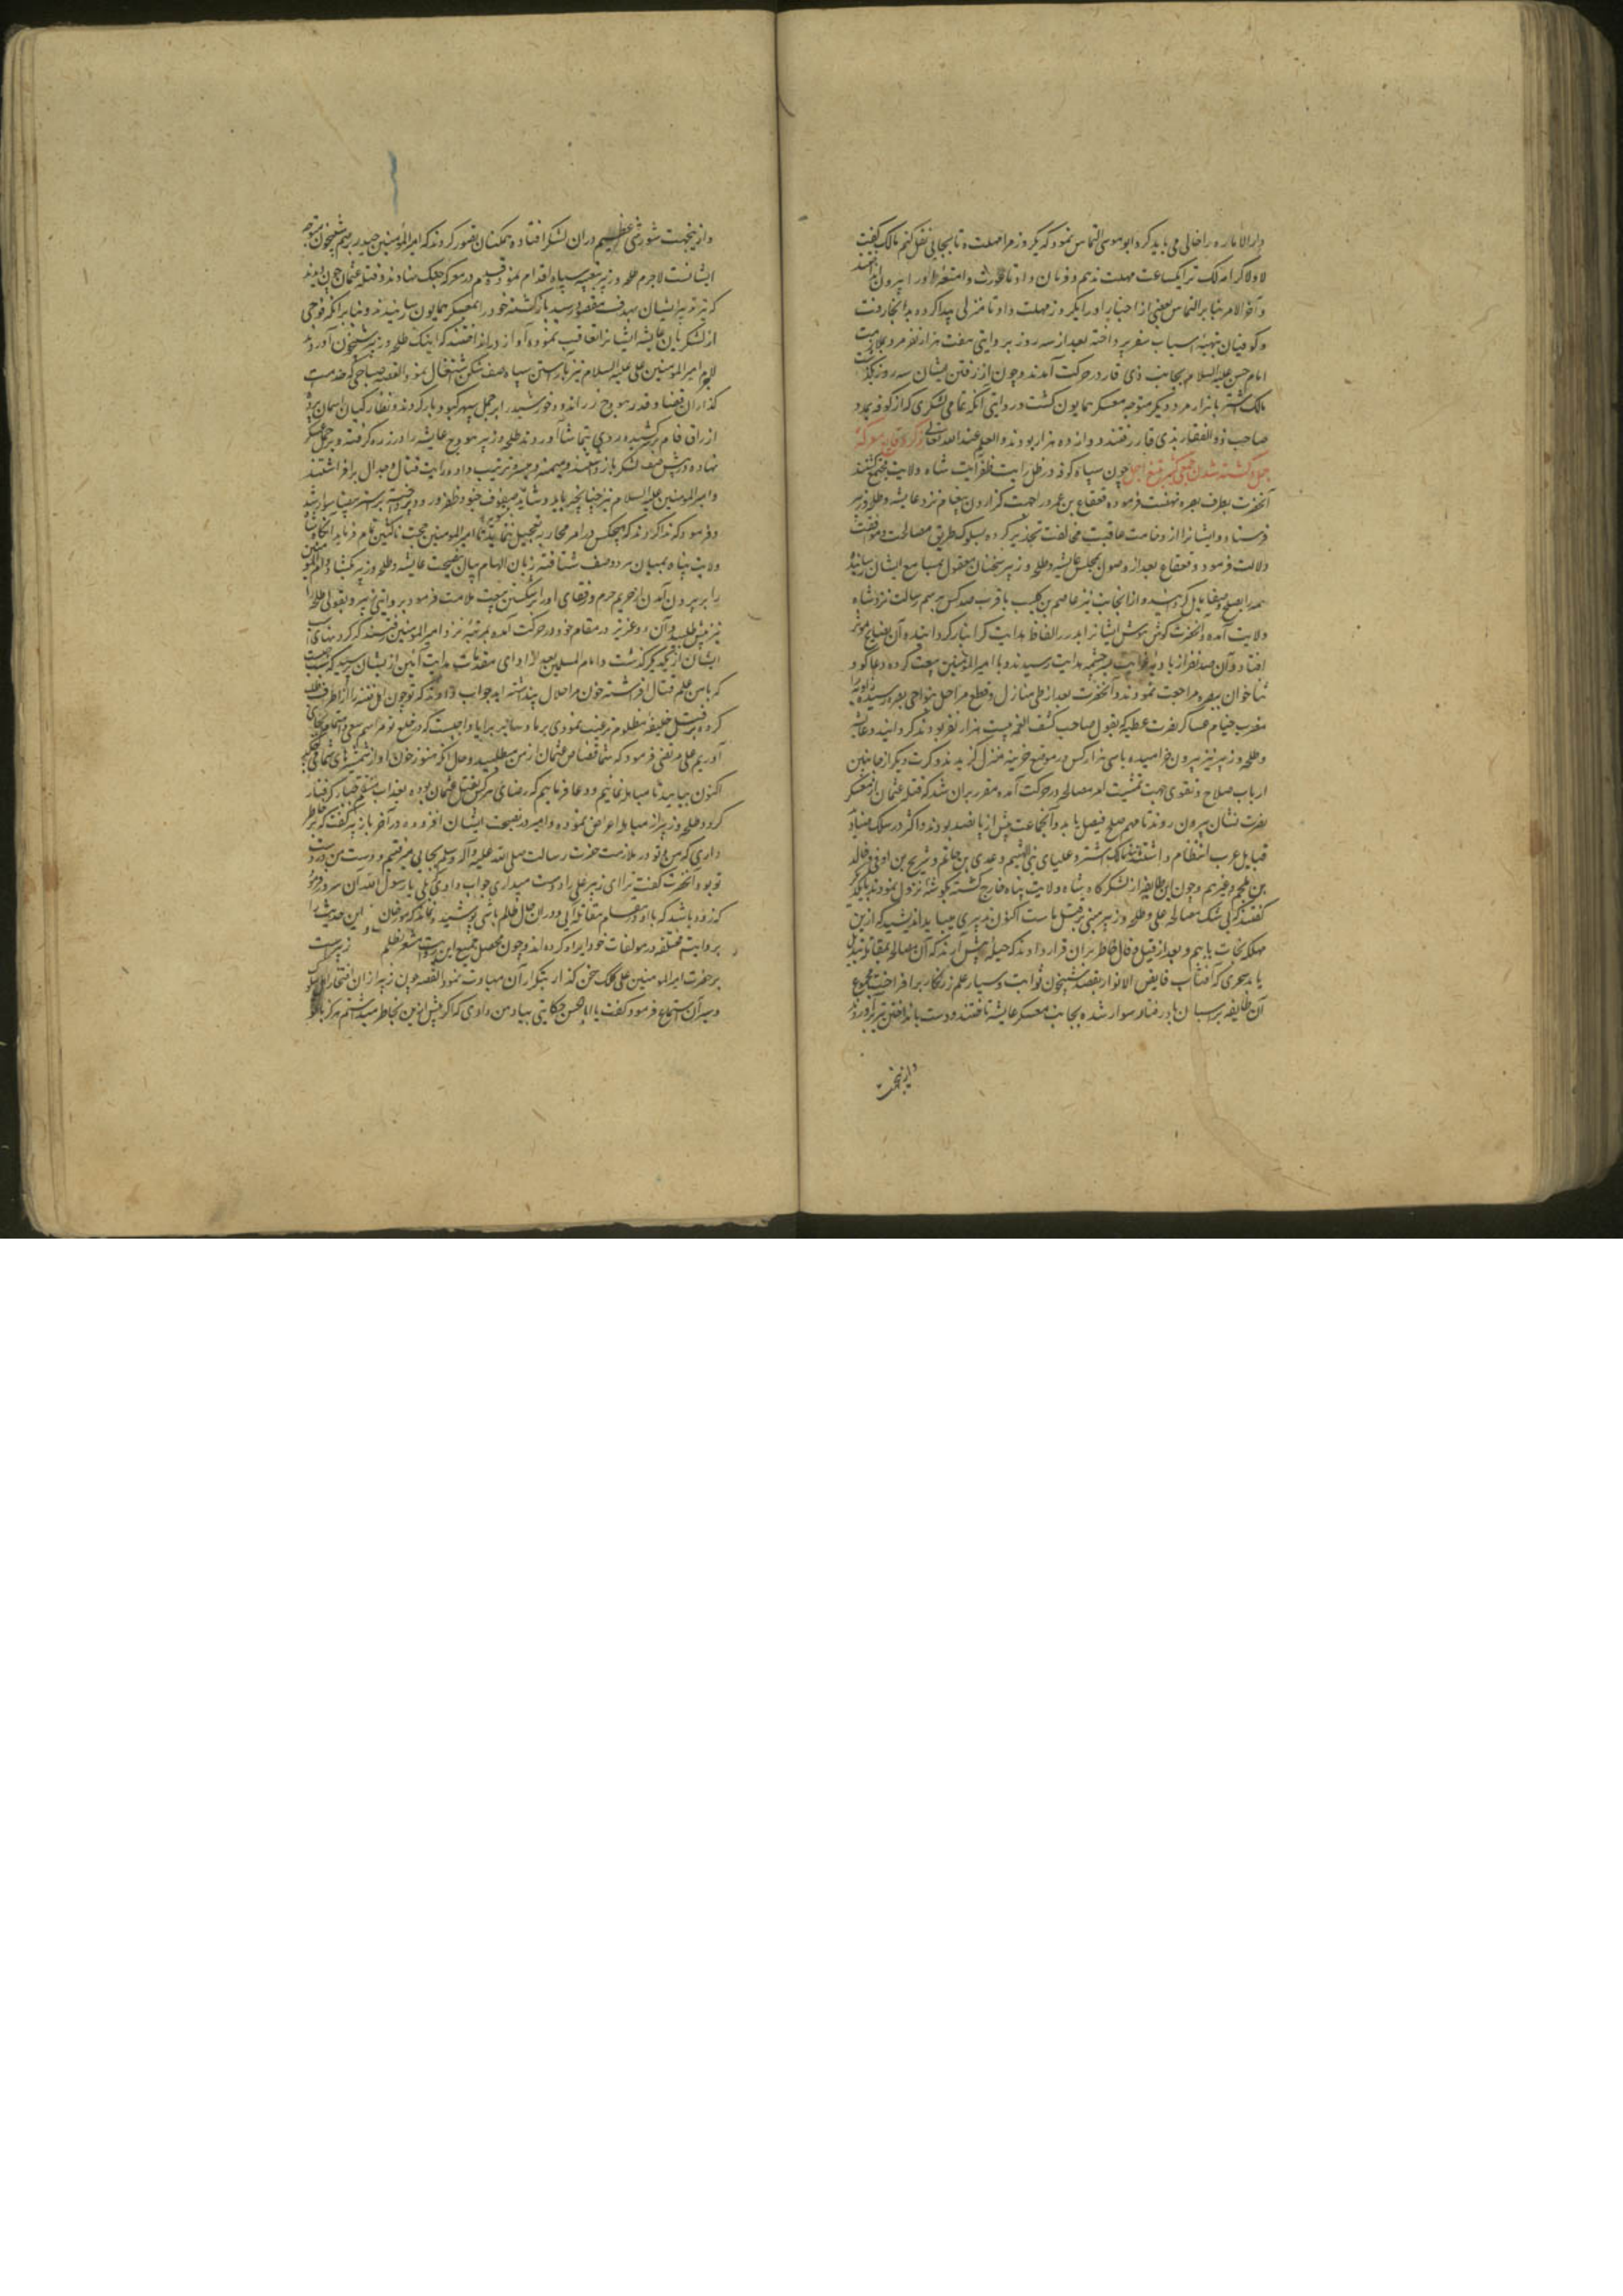 دار الاماره را خالی می باید کرد ابو موسی التماس نمود که یکروز مرا مهلت ده تا بجایی نقل کنم مالک گفت
لا ولا کرامه لک ترا یکساعت مهلت ندهم و فرمان داد تا رخوت و امتعه او را بیرون
و آخر الامر بنابر التماس بعضی از احبار او را یکروز مهلت داد تا منزلی پیدا کرده بدانجا رفت
و کوفیان بتهیه اسباب سفر پرداخته بعد از سه روز بروایتی هفت هزار نفر مرد در ملازمت
امام حسن علیه السلام بجانب ذی قار در حرکت آمدند و چون از رفتن ایشان سه روز بگذشت
مالک اشتر با هزار مرد دیگر متوجه معسکر همایون گشت و روایتی آنکه تمامی لشکری که از کوفه بمدد
صاحب ذو الفقار بذی قار رفتند دوازده هزار بودند و العلم عند الله تعالی ذکر وقایع معرکه
جمل و کشته شدن جمعی کثیر بتیغ اجل چون سپاه کوفه در ظل رایت ظفر آیت شاه ولایت مجتمع گشتند
آنحضرت بطرف بصره نهضت فرموده قعقاع بن عمرو را جهت گزاردن پیغام نزد عایشه و طلحه و زبیر
فرستاد و ایشانرا از وخامت عاقبت مخالفت تحذیر کرده بسلوک طریق مصالحت و موافقت
دلالت فرمود و قعقاع بعد از وصول بمجلس عایشه و طلحه و زبیر سخنان معقول بمسامع ایشان رسانیده
همه را بصلح و صفا مایل گردانید و از آنجانب نیز عاصم بن کلیب با قرب صد کس برسم رسالت نزد شاه
ولایت آمده و آنحضرت گوش هوش ایشانرا بدرر الفاظ هدایت گرانبار گردانیده آن نصایح موثر
افتاد و آن صد نفر از بادیه غوایت بسرچشمه هدایت رسیدند و با امیر المؤمنین بیعت کرده دعاگو و
ثناخوان ببصره مراجعت نمودند و آنحضرت بعد از طی منازل و قطع مراحل بنواحی بصره رسیده زاویه را
مضرب خیام عساکر نصرت عطیه که بقول صاحب کشف الغمه بیست هزار نفر بودند گردانید و عایشه
و طلحه و زبیر نیز بیرون خرامیده با سی هزار کس در موضع خریبه منزل گزیدند و کرت دیگر از جانبین
ارباب صلاح و تقوی جهت تمشیت امر مصالحه در حرکت آمده مقرر بران شد که قتله عثمان از معسکر
نصرت نشان بیرون روند تا مهم صلح فیصل یابد و آنجماعت بیش از پانصد بودند و اکثر در سلک صنادید
قبایل عرب انتظام داشتند مثل مالک اشتر و علیای بن الهیثم و عدی بن حاتم و شریح بن اوفی و خالد
بن ملجم و غیرهم و چون این طایفه از لشکرگاه شاه ولایت پناه خارج گشته بگوشه نزول نمودند با یکدیگر
گفتند که بی شک مصالحه علی و طلحه و زبیر مبنی بر قتل ماست اکنون تدبیری میباید اندیشید که ازین
مهلکه نجات یابیم و بعد از قیل و قال خاطر بران قرار دادند که حیله پیش آرند که آن مصالحه بمقاتله تبدیل
یابد سحری که آفتاب فایض الانوار بقصد شبیخون ثوابت و سیار علم زرنگار برافراخت مجموع
آن طایفه بر اسبان بادرفتار سوار شده بجانب معسکر عایشه تاختند و دست بانداختن تیر برآوردند
وازینجهت
وازینجهت شورشی عظیم دران لشکر افتاده همکنان تصور کردند که امیر المؤمنین حیدر برسم شبیخون متوجه
ایشانست لاجرم طلحه و زبیر بتعبیه سپاه اقدام نموده قدم در معرکه جنگ نهادند و قتله عثمان چون دیدند
که تیر تدبیر ایشان بهدف مقصود رسید بازگشته خود را بمعسکر همایون رسانیدند و بنابر آنکه فوجی
از لشکریان عایشه ایشانرا تعاقب نموده آواز درانداختند که اینک طلحه و زبیر شبیخون آوردند
لاجرم امیر المؤمنین علی علیه السلام نیز بآراستن سپاه صف شکن اشتغال نمود القصه صباحی که خدمت
گذاران قضا و قدر هودج زراندود خورشید را بر جمل سپهر کبود بار کردند و نظارکیان آسمان پرده
ازرق فام برکشیده روی بتماشا آوردند طلحه و زبیر هودج عایشه را در زره گرفته و بر جمل عسکر
نهاده در پیش صف لشکر بازداشتند و میمنه و میسره ترتیب داده رایت قتال و جدال برافراشتند
و امیر المؤمنین علیه السلام نیز چنانچه باید و شاید صفوف جنود ظفر ورود آراسته بر استر بیضا سوار شد
و فرمود که ندا کردند که هیچکس در امر محاربه تعجیل ننماید تا امیر المؤمنین حجت بناکثین تمام فرماید آنگاه شاه
ولایت پناه بمیان هر دو صف شتافته زبان الهام بیان بنصیحت عایشه و طلحه و زبیر بگشاد و ام المؤمنین
را بر بیرون آمدن از حریم حرم و رفقای او را بر شکستن بیعت ملامت فرمود بروایتی زبیر و بقولی طلحه را
نیز پیش طلبید و آن دو عزیز در مقام خود در حرکت آمده بمرتبه نزد امیر المؤمنین رفتند که گردنهای اسب
ایشان از یکدیگر گذشت و امام المسلمین بعد از ادای مقدمات هدایت آیین از ایشان پرسید که بچه سبب
که با من علم قتال افراشته خون مرا حلال پنداشته اید جواب دادند که تو چون اهل فتنه را از اطراف طلب
کرده بر قتل خلیفه مظلوم ترغیب نمودی بر ما و سایر برایا واجبست که در خلع تو مراسم سعی و اجتهاد بجای
آوریم علی مرتضی فرمود که شما قصاص عثمان از من میطلبید و حال آنکه هنوز خون او از شمشیرهای شما می چکد
اکنون بیایید تا مباهله نماییم و دعا فرماییم که رضای هر کس بقتل عثمان بوده بعذاب منتقم قهار گرفتار
گردد طلحه و زبیر از مباهله اعراض نموده و امیر در نصیحت ایشان افزوده در آخر با زبیر گفت که بخاطر
داری که من و تو در ملازمت حضرت رسالت صلی الله علیه و آله و سلم بجایی میرفتیم و دست من در دست
تو بود و آنحضرت گفت ترا ای زبیر علی را دوست میداری جواب دادی که بلی یا رسول الله آن سرور فرمود
که زود باشد که با او در مقام مقاتله آیی و دران حال ظالم باشی پوشیده نماند که مورخان این حدیث را
بروایت مختلفه در مولفات خود ایراد کرده اند و چون محصل جمیع این روایت مشعر بظلم زبیرست
بر حضرت امیر المؤمنین علی کلک سخن گذار بتکرار آن مبادرت ننمود القصه چون زبیر ازان افتخار اهل
و سیر آن استماع فرمود گفت یا ابا الحسن حکایتی بیاد من دادی که اگر پیش ازین بخاطر میداشتم هرگز با تو